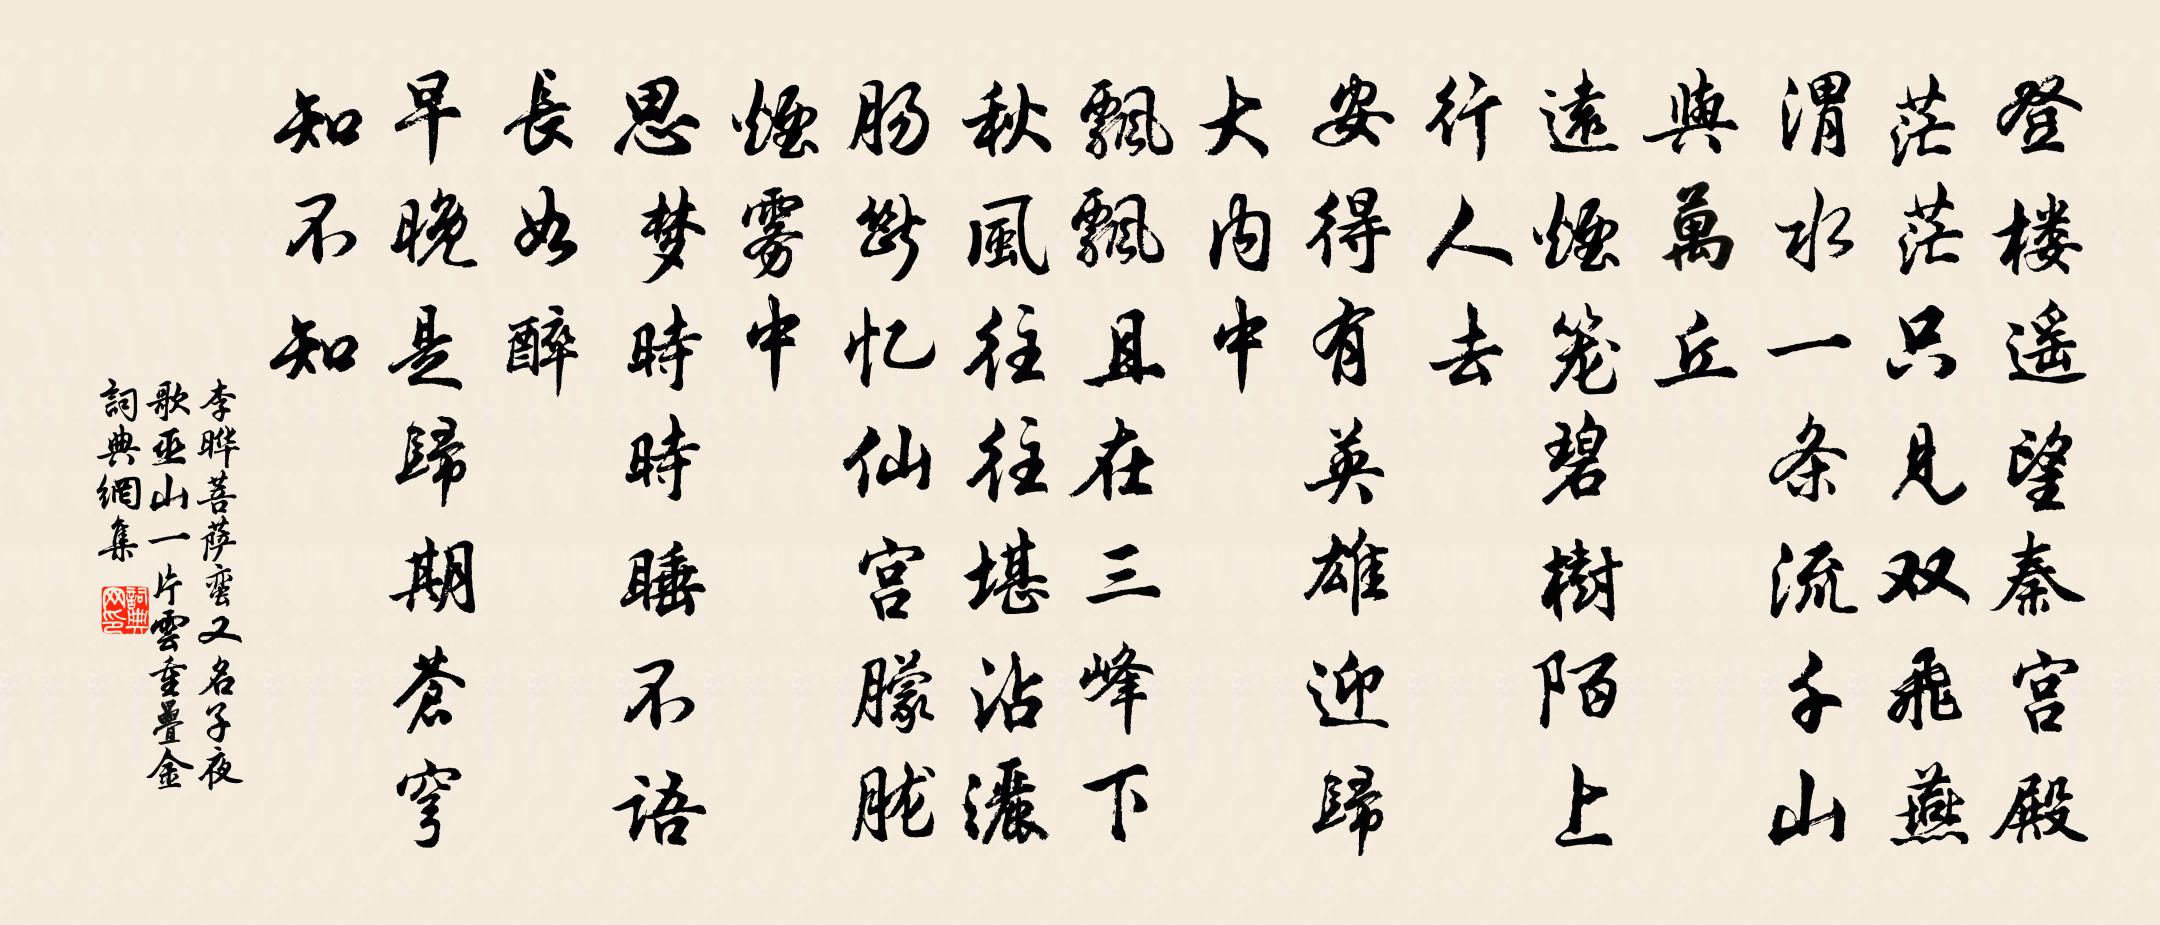 登楼遥望秦宫殿
茫茫只見双飛燕
渭水一条流千山
與萬丘
遠煙笼碧樹陌上
行人去
安得有英雄迎歸
大内中
飄飄且在三峰下
秋風往往堪沾灑
肠斷忆仙宫朦胧
煙雾中
思梦時時睡不语
長如醉
早晚是歸期蒼穹
知不知
李晔菩萨蛮又名子夜
歌巫山一片雲重疊金
詞典網集
詞典网印